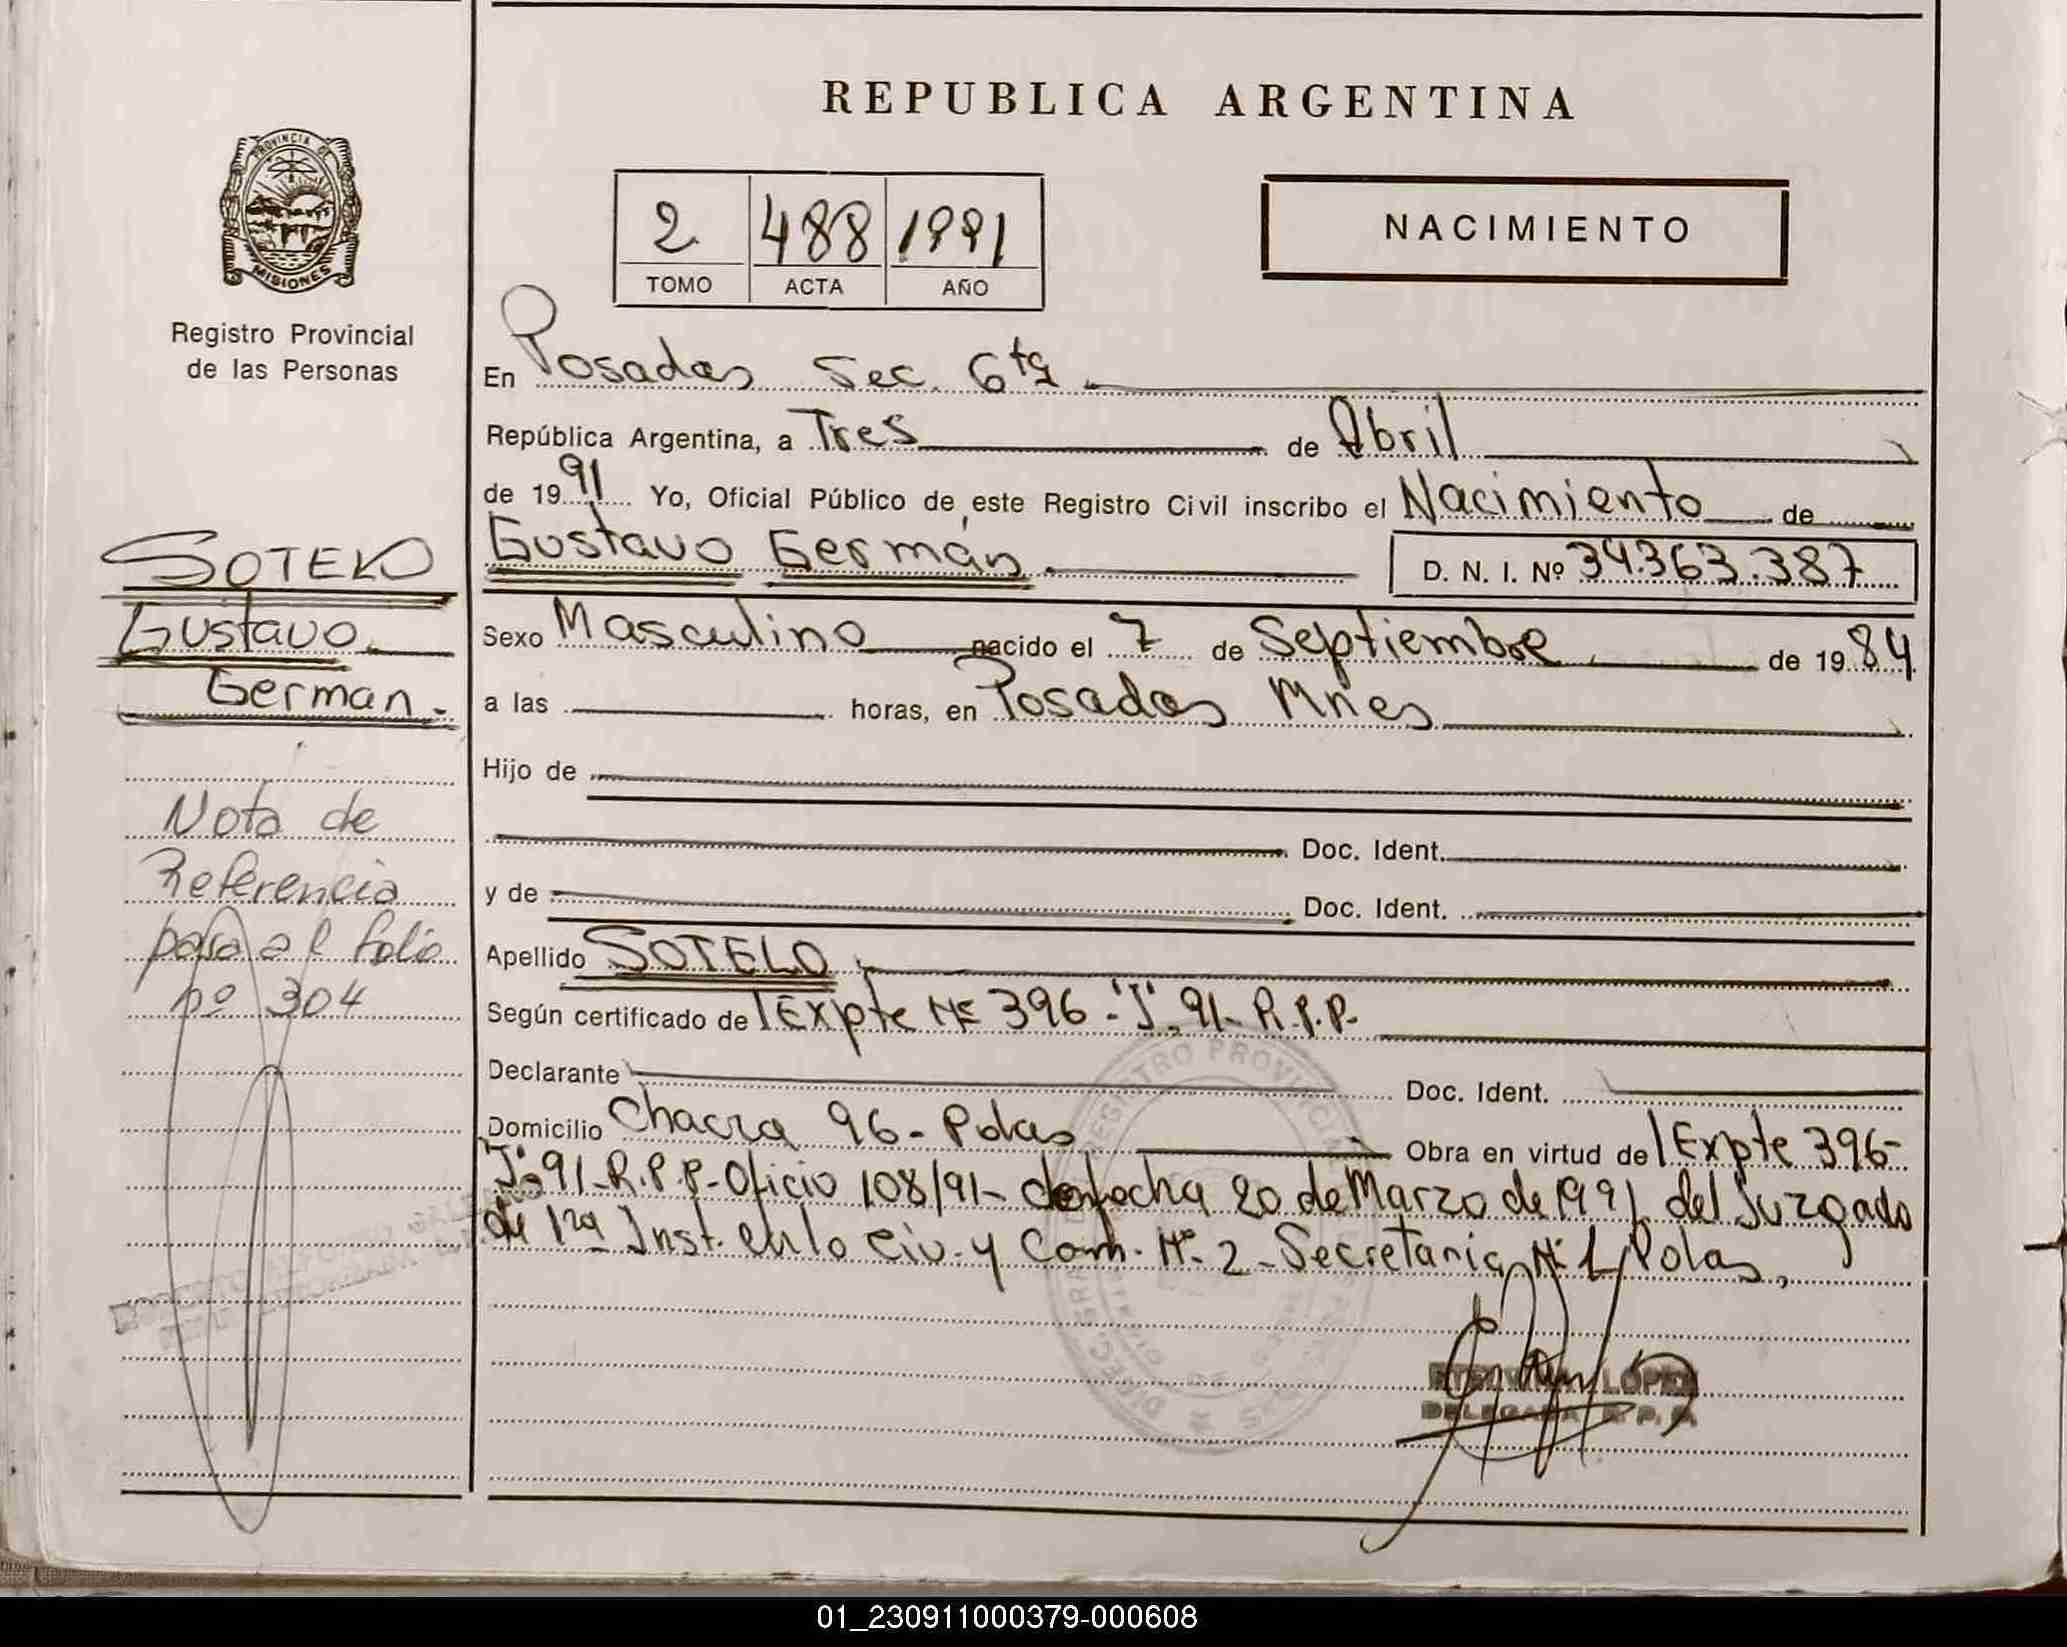 REPUBLICA ARGENTINA
PROVINCIA DE
MISIONES
Registro Provincial
de las Personas
2 488 1991
TOMO ACTA AÑO
NACIMIENTO
En Posadas Sec. 6ta
República Argentina, a Tres de Abril
de 1991 Yo, Oficial Público de este Registro Civil inscribo el Nacimiento de
Gustavo Germán D. N. I. Nº 34.363.387
Sexo Masculino nacido el 7 de Septiembre de 1984
a las horas, en Posadas Mnes
Hijo de
Doc. Ident.
y de Doc. Ident.
Apellido SOTELO
Según certificado de Expte Nº 396-"J"-91-R.P.P.
Declarante Doc. Ident.
Domicilio Chacra 96-Pdas Obra en virtud de Expte 396-
"J"-91-R.P.P-Oficio 108/91- de fecha 20 de Marzo de 1991 del Juzgado
de 1ra Inst. en lo Civ. y Com. Nº 2-Secretaria Nº 1, Pdas,
SOTELO
Gustavo
German.-
Nota de
Referencia
para el folio
nº 304
REGISTRO PROVINCIAL
LOPEZ
DELEGADA R. P. P.
01_230911000379-000608